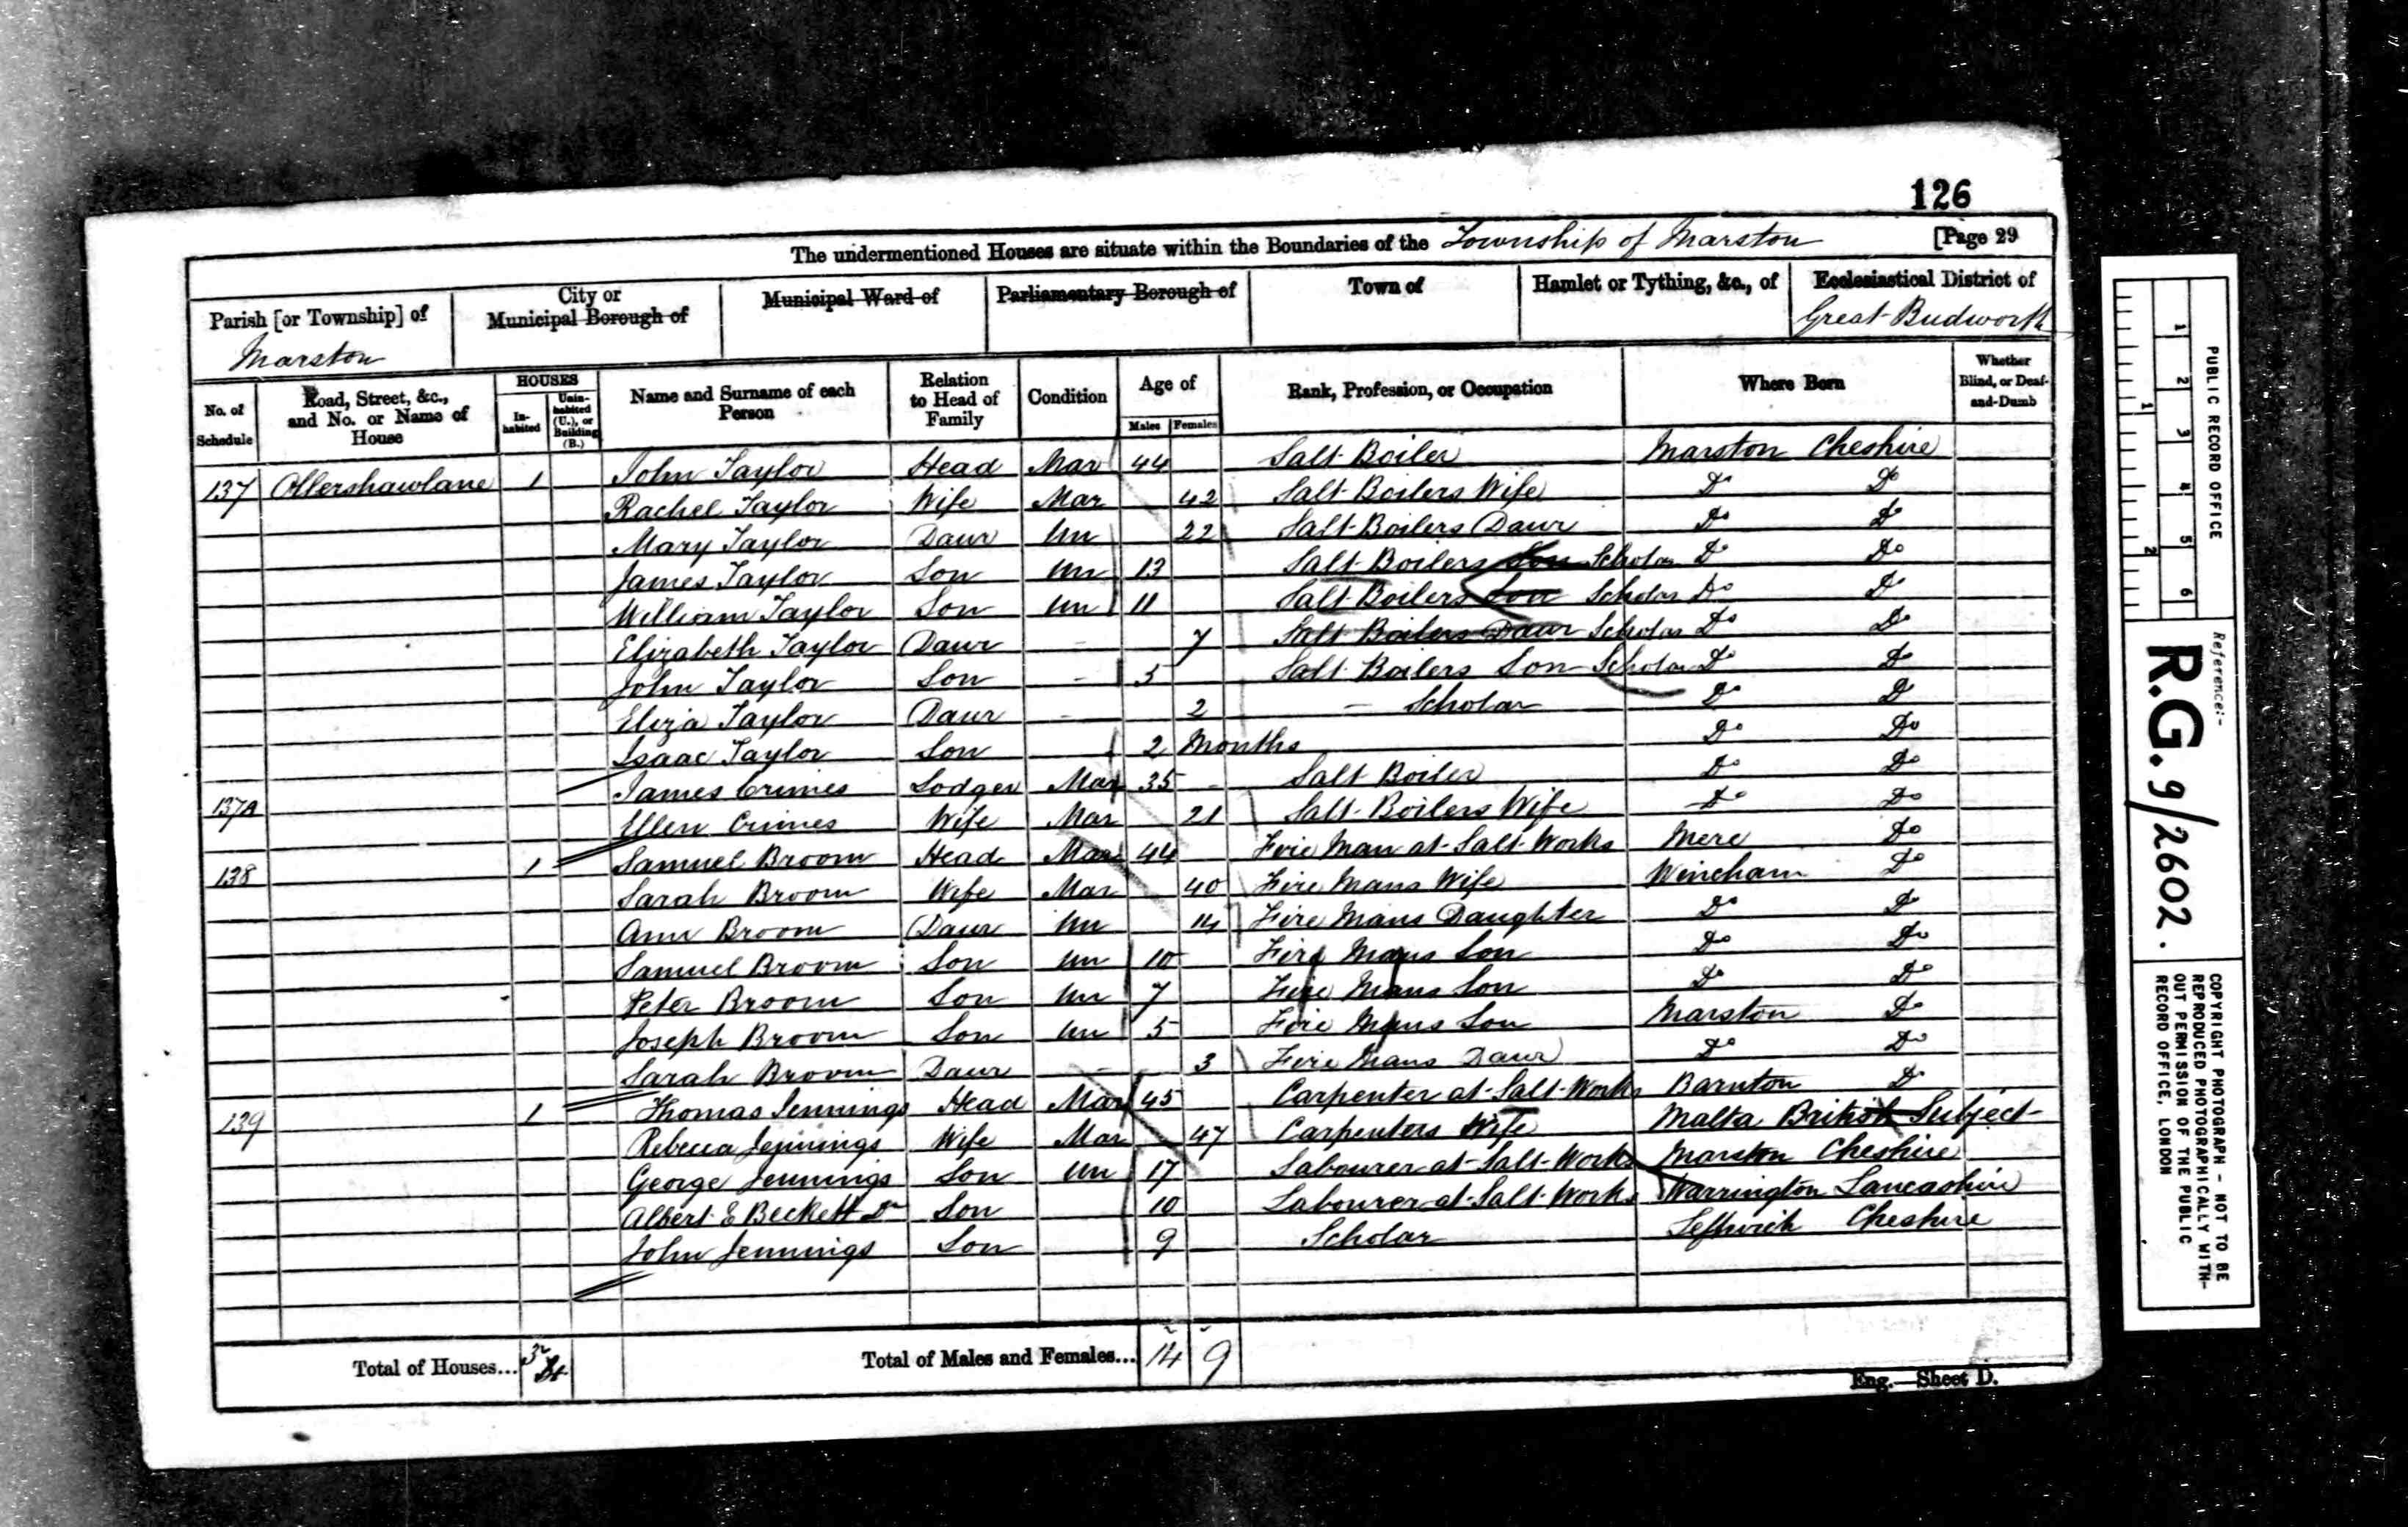 126
The undermentioned Houses are situate within the Boundaries of the Township of Marston [Page 29
Parish [or Township] of City or Municipal Borough of Municipal Ward of Parliamentary Borough of Town of Hamlet or Tything, &c., of Ecclesiastical District of
Marston Great Budworth
No. of Schedule Road, Street, &c., and No. or Name of House HOUSES Inhabited Uninhabited (U.), or Building (B.) Name and Surname of each Person Relation to Head of Family Condition Age of Males Females Rank, Profession, or Occupation Where Born Whether Blind, or Deaf-and-Dumb
137 Ollershawlane 1 John Taylor Head Mar 44 Salt Boiler Marston Cheshire
Rachel Taylor Wife Mar 42 Salt Boilers Wife Do Do
Mary Taylor Daur Un 22 Salt Boilers Daur Do Do
James Taylor Son Un 13 Salt Boilers Son Scholar Do Do
William Taylor Son Un 11 Salt Boilers Son Scholar Do Do
Elizabeth Taylor Daur - 7 Salt Boilers Daur Scholar Do Do
John Taylor Son - 5 Salt Boilers Son Scholar Do Do
Eliza Taylor Daur - 2 - Scholar Do Do
Isaac Taylor Son 2 Months Do Do
137A James Crimes Lodger Mar 35 Salt Boiler Do Do
Ellen Crimes Wife Mar 21 Salt Boilers Wife Do Do
138 1 Samuel Broom Head Mar 44 Fire Man at Salt Works Mere Do
Sarah Broom Wife Mar 40 Fire Mans Wife Wincham Do
Ann Broom Daur Un 14 Fire Mans Daughter Do Do
Samuel Broom Son Un 10 Fire Mans Son Do Do
Peter Broom Son Un 7 Fire Mans Son Do Do
Joseph Broom Son Un 5 Fire Mans Son Marston Do
Sarah Broom Daur - 3 Fire Mans Daur Do Do
139 1 Thomas Jennings Head Mar 45 Carpenter at Salt Works Barnton Do
Rebecca Jennings Wife Mar 47 Carpenters Wife Malta British Subject
George Jennings Son Un 17 Labourer at Salt Works Marston Cheshire
Albert E Beckett Do Son 10 Labourer at Salt Works Warrington Lancashire
John Jennings Son 9 Scholar Leftwich Cheshire
Total of Houses... 3 Total of Males and Females... 14 9
Eng.—Sheet D.
PUBLIC RECORD OFFICE
1 2 3 4 5 6
1 2
Reference:-
R.G. 9/2602.
COPYRIGHT PHOTOGRAPH - NOT TO BE
REPRODUCED PHOTOGRAPHICALLY WITH-
OUT PERMISSION OF THE PUBLIC
RECORD OFFICE, LONDON